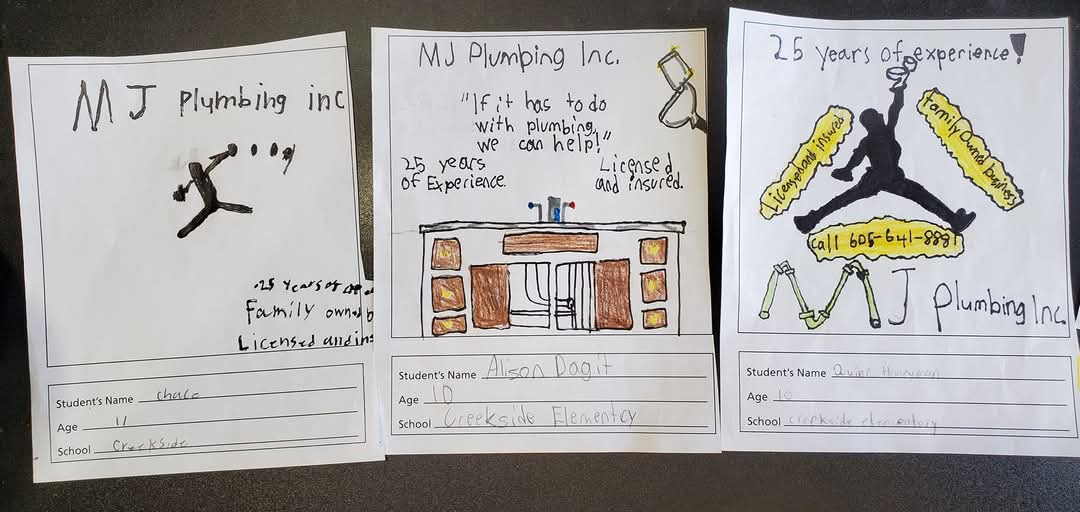 MJ plumbing inc
25 years of
Family owned b
Licensed and ins
Student's Name Chace
Age 11
School Creekside
MJ Plumbing Inc.
"If it has to do
with plumbing,
we can help!"
25 years
of Experience.
Licensed
and insured.
Student's Name Alison Dagit
Age 10
School Creekside Elementry
25 years of experience!
Licensed and insured
Family Owned business
Call 605-641-8881
MJ Plumbing Inc.
Student's Name Quinn
Age 10
School creekside elementary